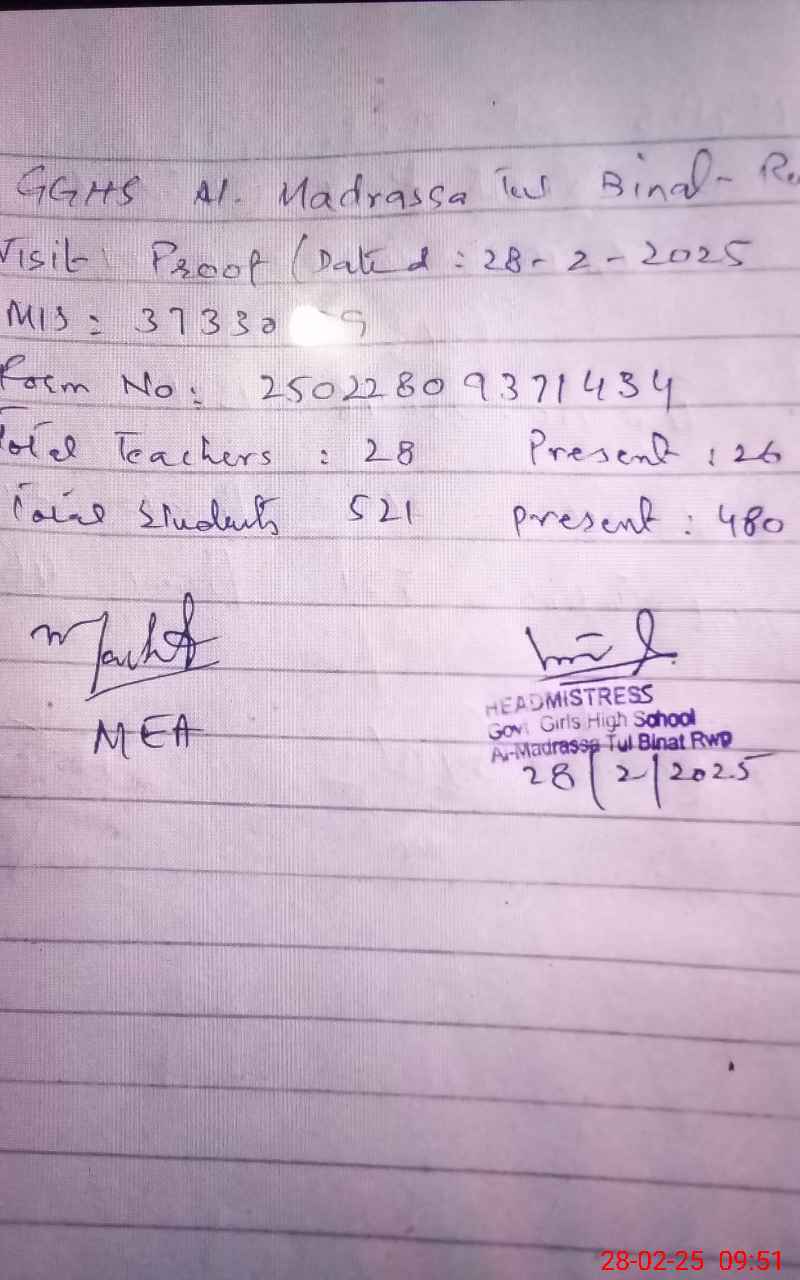 GGHS Al. Madrassa Tul Binat-
Visit Proof (Dated: 28-2-2025
MIS: 37330
Form No: 25022809371434
Total Teachers : 28 Present : 26
Total Students 521 present : 480
MEA
HEADMISTRESS
Govt Girls High School
Al-Madrassa Tul Binat RWP
28/2/2025
28-02-25 09:51